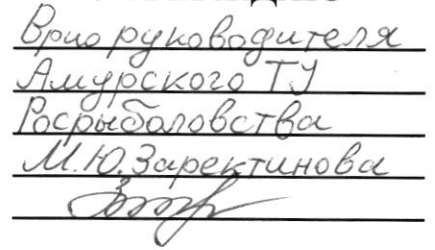 Врио руководителя
Амурского ТУ
Росрыболовства
М.Ю.Заректинова